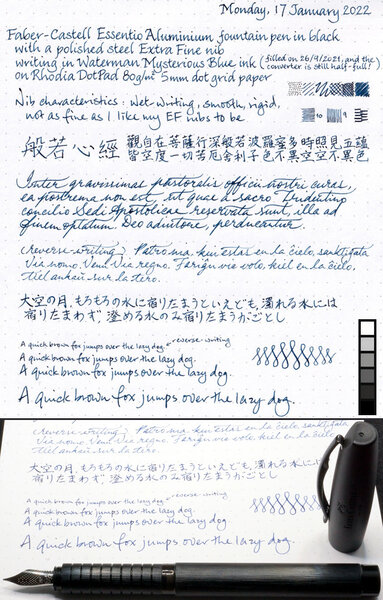 Monday, 17 January 2022
Faber-Castell Essentio Aluminium fountain pen in black
with a polished steel Extra Fine nib
writing in Waterman Mysterious Blue ink (filled on 26/9/2021, and the converter is still half-full!)
on Rhodia DotPad 80g/m² 5mm dot grid paper
Nib characteristics: Wet-writing, smooth, rigid,
not as fine as I like my EF nibs to be
般若心經 觀自在菩薩行深般若波羅蜜多時照見五蘊
皆空度一切苦厄舍利子色不異空空不異色
Inter gravissimas pastoralis officii nostri curas,
ea postrema non est, ut quae a sacro Tridentino
concilio Sedi Apostolicae reservata sunt, illa ad
finem optatum, Deo adiutore, perducantur.
(reverse-writing) Patro nia, kiu estas en la ĉielo, sanktigata
Via nomo. Venu Via regno. Fariĝu via volo, kiel en la ĉielo,
tiel ankaŭ sur la tero.
大空の月、もろもろの水に宿りたまうといえども、濁れる水には
宿りたまわず 澄める水のみ宿りたまうがごとし
A quick brown fox jumps over the lazy dog. reverse-writing
A quick brown fox jumps over the lazy dog.
A quick brown fox jumps over the lazy dog.
A quick brown fox jumps over the lazy dog.
(reverse-writing) Patro nia, kiu estas en la ĉielo, sanktigata
Via nomo. Venu Via regno. Fariĝu via volo, kiel en la ĉielo,
tiel ankaŭ sur la tero.
大空の月、もろもろの水に宿りたまうといえども、濁れる水に
宿りたまわず 澄める水のみ宿りたまうがごとし
A quick brown fox jumps over the lazy dog. reverse-writing
A quick brown fox jumps over the lazy dog.
A quick brown fox jumps over the lazy dog.
A quick brown fox jumps over the lazy dog.